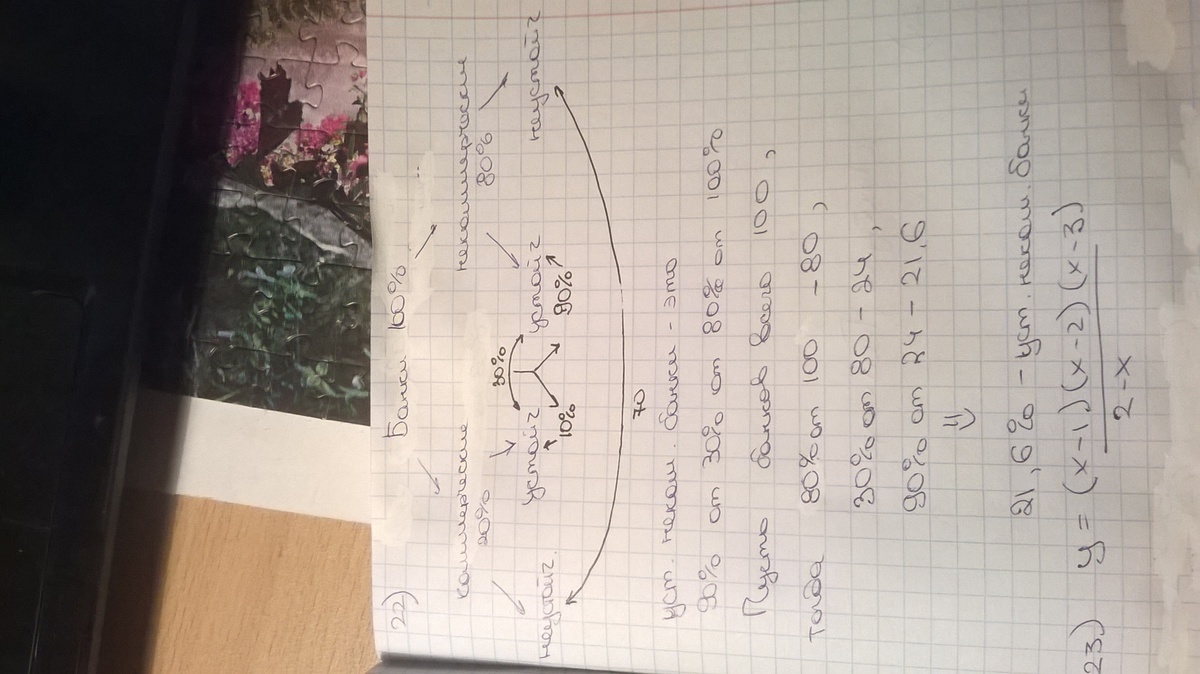 22) Банки 100%
коммерческие некоммерческие
20% 80%
30%
неустойч. устойч устойч неустойч
10% 90%
70
уст. неком. банки - это
90% от 30% от 80% от 100%
Пусть банков всего 100,
тогда 80% от 100 - 80,
30% от 80 - 24,
90% от 24 - 21,6
21,6% - уст. неком. банки
23) y = (x-1)(x-2)(x-3)
2-x